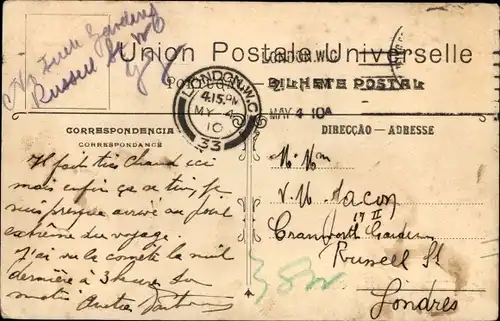 Union Postale Universelle
LONDON.W.C
BILHETE POSTAL
MAY 4 10
LONDON.W.C
4.15.PM
MY 4
10
33
CORRESPONDENCIA
CORRESPONDANCE
DIRECÇÃO — ADRESSE
Russell St
Il fait très chaud ici
mais enfin ça se tire, je
suis presque arrivé au point
extrême du voyage.
J'ai vu la comète la nuit
dernière à 3 heures du
matin
17 II
Cranworth Gardens
Russell St
Londres